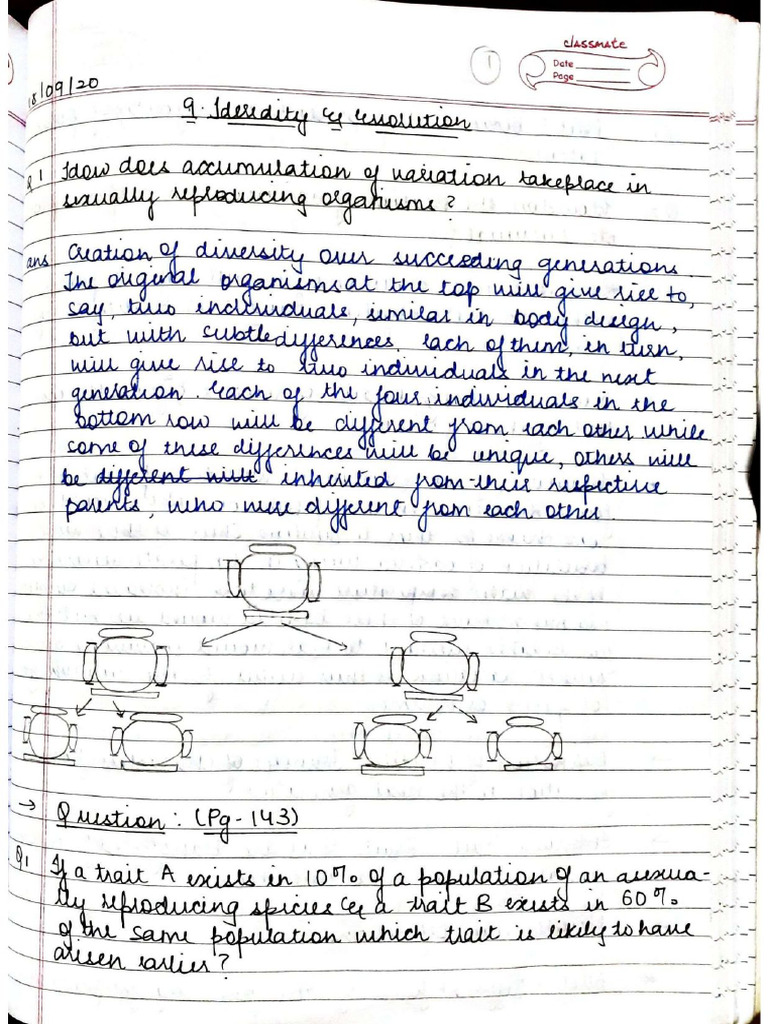 classmate
Date
Page
1
18/09/20
9. Heredity & Evolution
Q1 How does accumulation of variation takeplace in
sexually reproducing organisms?
ans Creation of diversity over succeeding generations.
The original organisms at the top will give rise to,
say, two individuals, similar in body design,
but with subtle differences, each of them, in turn,
will give rise to two individuals in the next
generation. Each of the four individuals in the
bottom row will be different from each other while
some of these differences will be unique, others will
be different will inherited from their respective
parents, who were different from each other.
→ Question: (Pg-143)
Q1 If a trait A exists in 10% of a population of an asexua-
lly reproducing species & a trait B exists in 60%
of the same population which trait is likely to have
arisen earlier?